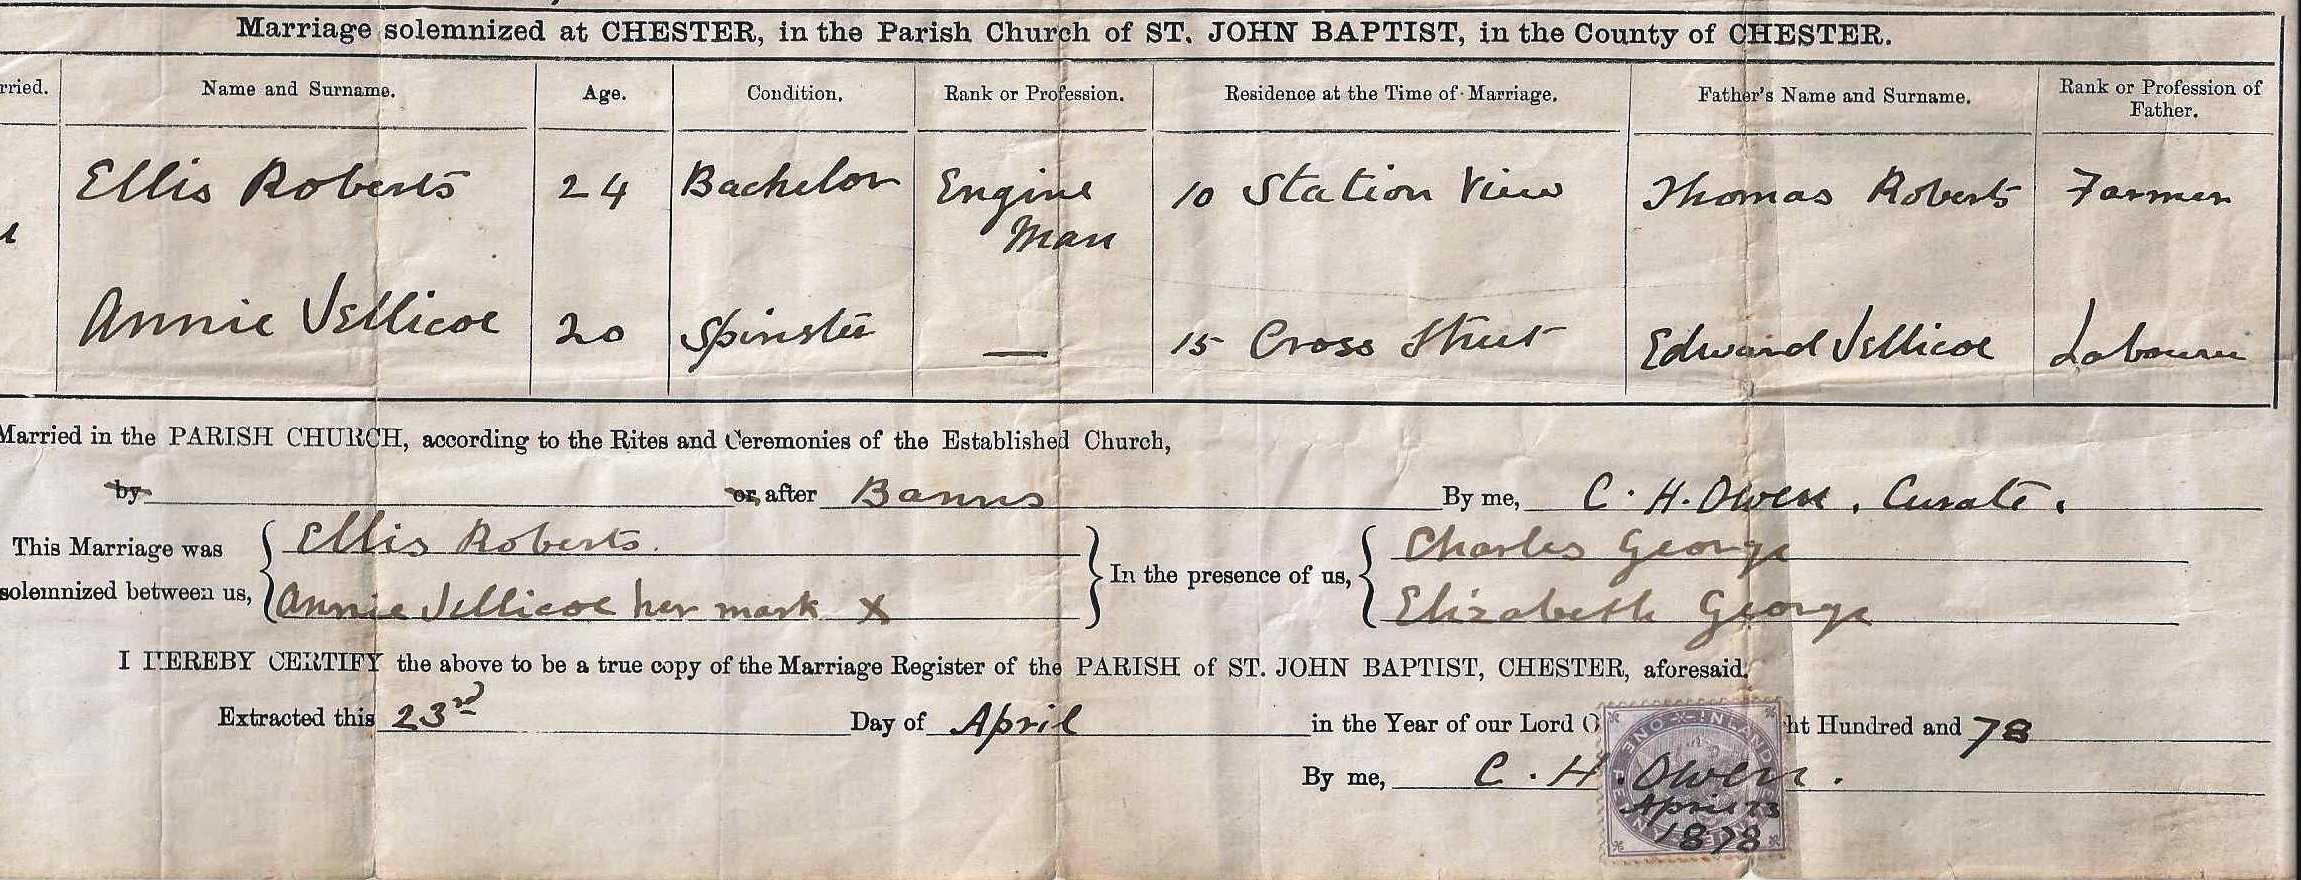 Marriage solemnized at CHESTER, in the Parish Church of ST. JOHN BAPTIST, in the County of CHESTER.
rried. Name and Surname. Age. Condition. Rank or Profession. Residence at the Time of Marriage. Father's Name and Surname. Rank or Profession of Father.
Ellis Roberts 24 Bachelor Engine Man 10 Station View Thomas Roberts Farmer
Annie Jellicoe 20 Spinster — 15 Cross Street Edward Jellicoe Labourer
Married in the PARISH CHURCH, according to the Rites and Ceremonies of the Established Church,
by or, after Banns By me, C. H. Owen, Curate.
This Marriage was solemnized between us, Ellis Roberts. In the presence of us, Charles George
Annie Jellicoe her mark X Elizabeth George
I HEREBY CERTIFY the above to be a true copy of the Marriage Register of the PARISH of ST. JOHN BAPTIST, CHESTER, aforesaid.
Extracted this 23rd Day of April in the Year of our Lord O ht Hundred and 78
By me, C. H. Owen.
INLAND ONE PENNY
April 23
1878